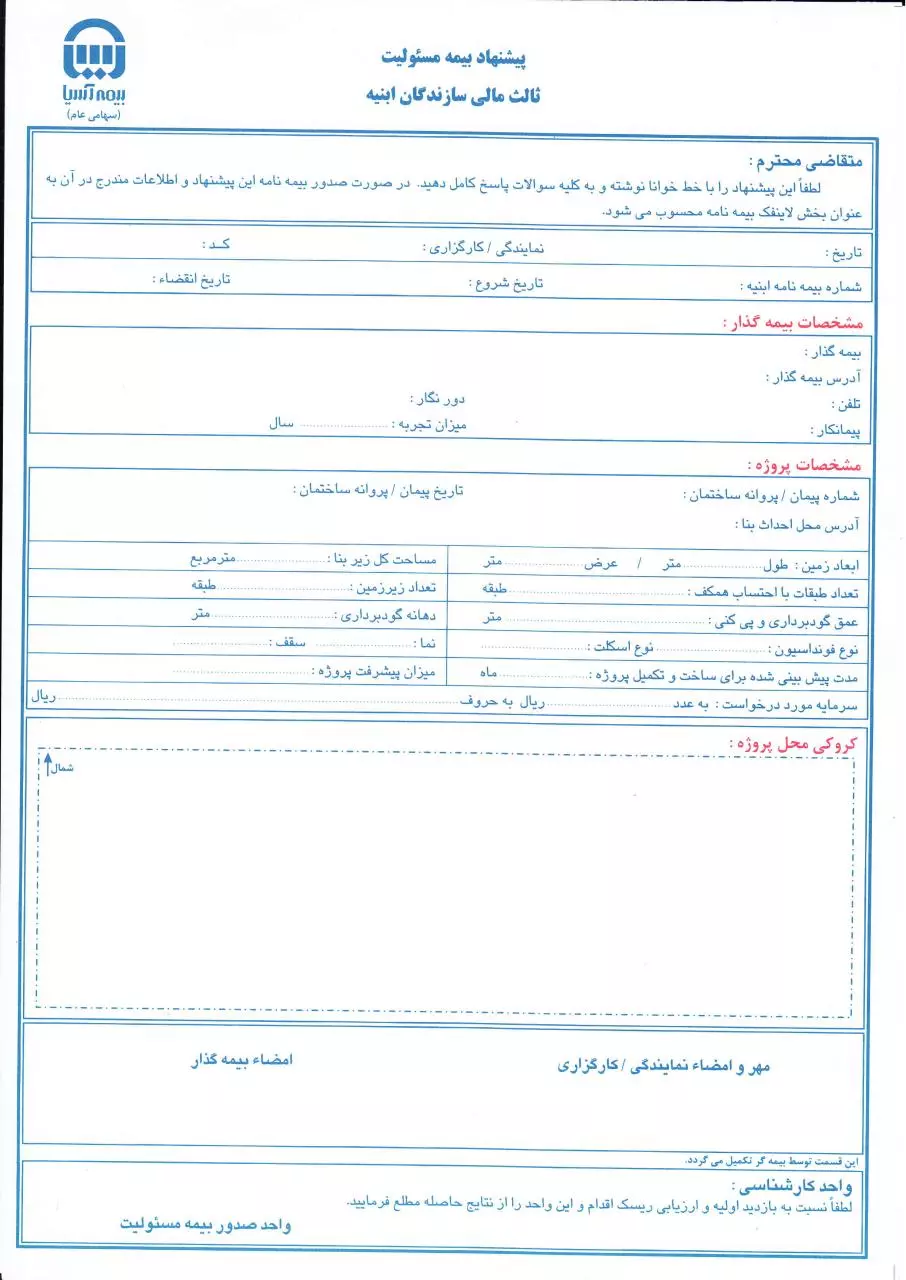 بیمه آسیا
(سهامی عام)
پیشنهاد بیمه مسئولیت
ثالث مالی سازندگان ابنیه
متقاضی محترم :
لطفاً این پیشنهاد را با خط خوانا نوشته و به کلیه سوالات پاسخ کامل دهید. در صورت صدور بیمه نامه این پیشنهاد و اطلاعات مندرج در آن به
عنوان بخش لاینفک بیمه نامه محسوب می شود.
تاریخ : نمایندگی / کارگزاری : کـد :
شماره بیمه نامه ابنیه : تاریخ شروع : تاریخ انقضاء :
مشخصات بیمه گذار :
بیمه گذار :
آدرس بیمه گذار :
تلفن : دور نگار :
پیمانکار : میزان تجربه : ........................ سال
مشخصات پروژه :
شماره پیمان / پروانه ساختمان : تاریخ پیمان / پروانه ساختمان :
آدرس محل احداث بنا :
ابعاد زمین : طول........................متر / عرض........................متر مساحت کل زیر بنا :........................مترمربع
تعداد طبقات با احتساب همکف :........................طبقه تعداد زیرزمین :........................طبقه
عمق گودبرداری و پی کنی :........................متر دهانه گودبرداری :........................متر
نوع فونداسیون :........................نوع اسکلت :........................ نما :........................ سقف :........................
مدت پیش بینی شده برای ساخت و تکمیل پروژه :........................ماه میزان پیشرفت پروژه :........................
سرمایه مورد درخواست : به عدد........................ریال به حروف........................ریال
کروکی محل پروژه :
شمال
مهر و امضاء نمایندگی / کارگزاری امضاء بیمه گذار
این قسمت توسط بیمه گر تکمیل می گردد.
واحد کارشناسی :
لطفاً نسبت به بازدید اولیه و ارزیابی ریسک اقدام و این واحد را از نتایج حاصله مطلع فرمایید.
واحد صدور بیمه مسئولیت